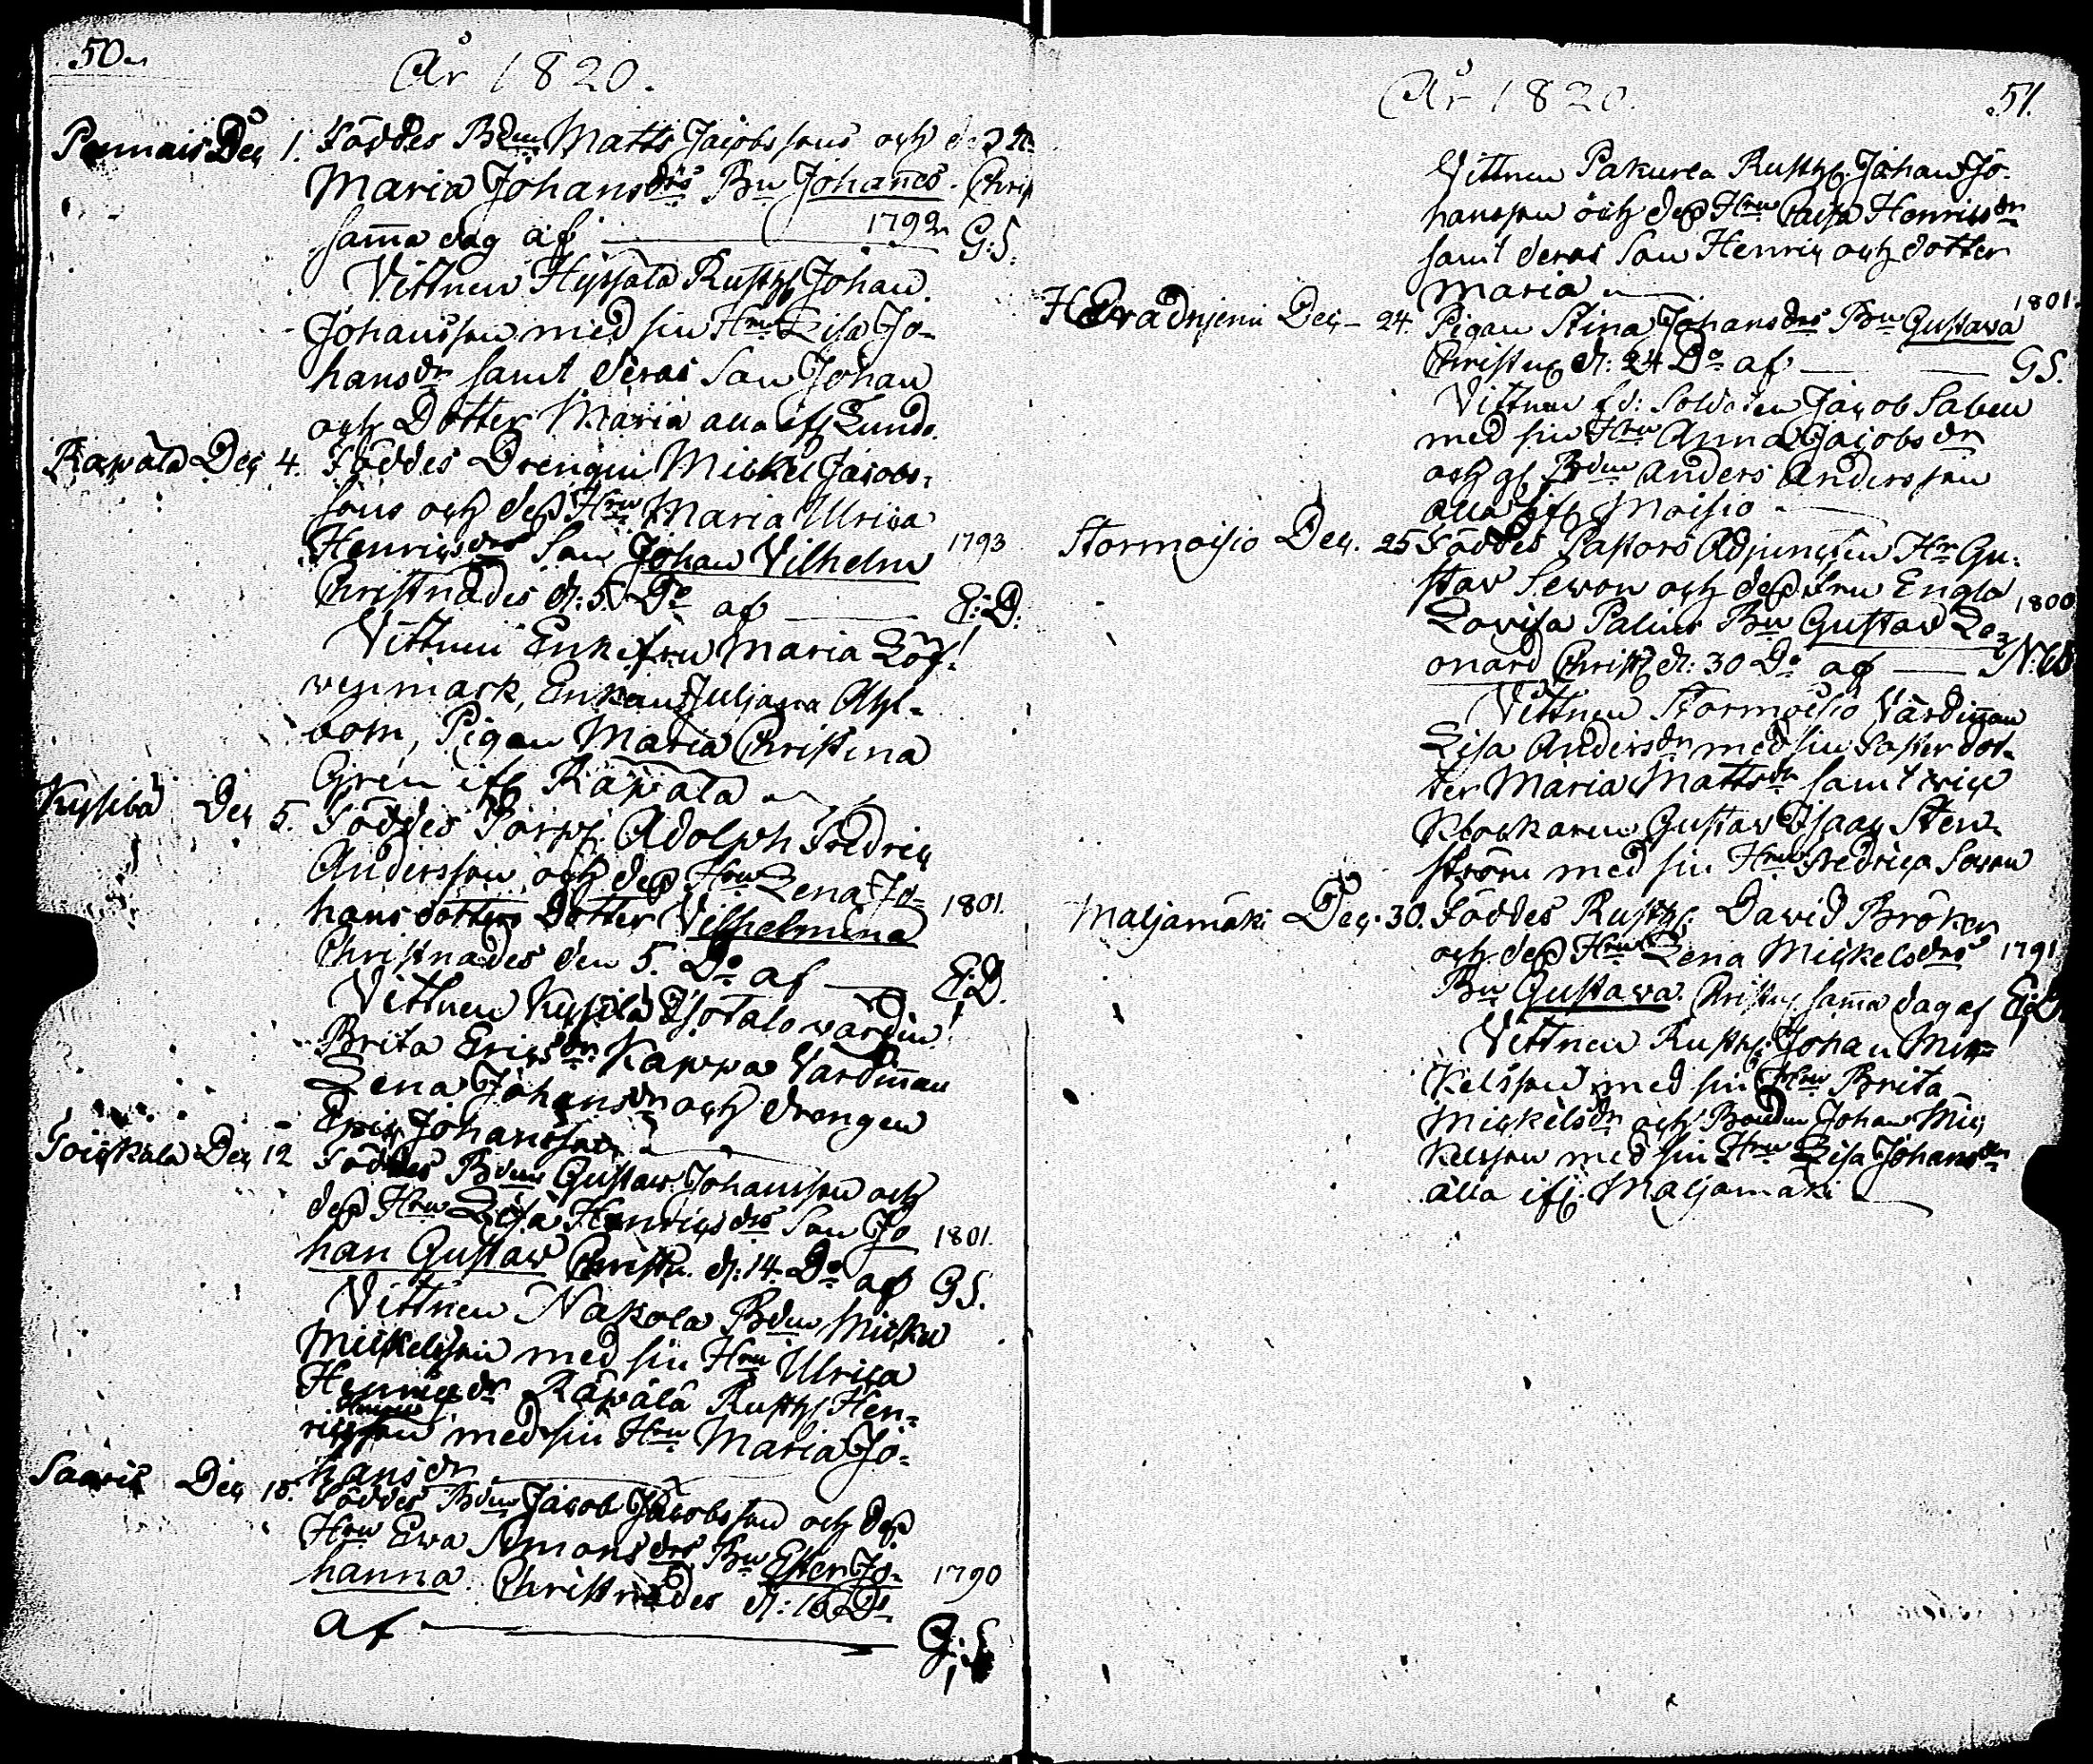 50.
År 1820.
Pennais Dec 1. Föddes Bdn Matts Jacobssons och dess H
Maria Johansdrs Bn Johannes. Christ
samma dag af 1792 G:S.
Vittnen Hypsälä Rusth. Johan
Johansson med sin Hru Lisa Jo-
hansdr samt deras Son Johan
och Dotter Maria alla ifr Lundo.
Räpälä Dec 4. Föddes Drengen Mickel Jacobs-
sons och dess Hru Maria Ulrica
Henricsdrs Son Johan Vilhelm 1793
Christnades d: 5 Do af E:D:
Vittnen Enkefru Maria Löf-
venmark, Enkan Juljana Ahl-
bom, Pigan Maria Christina
Gren ifr Räpälä
Kyssilä Dec 5. Föddes Torp. Adolph Fredric
Andersson och dess Hru Lena Jo- 1801.
hansdotters Dotter Vilhelmina
Christnades den 5. Do af E:D.
Vittnen Kyssilä Isotalo värdin
Brita Ericsdr Kappa Värdinnan
Lena Johansdr och drengen
Eric Johansson
Toickala Dec 12 Föddes Bdns Gustaw Johansson och
dess Hru Lisa Henricsdrs Son Jo 1801.
han Gustaw Christn. d: 14 Do af GS.
Vittnen Nakola Bdn Mickel
Mickelsson med sin Hru Ulrica
Henricsdr Räpälä Rusth Hen-
ricsson med sin Hru Maria Jo-
hansdr
Saaris Dec 15. Föddes Bdns Jacob Jacobsson och dess
Hru Ewa Simonsdrs Bn Ester Jo- 1790
hanna. Christnades d: 16 Do
af G:S
År 1820. 51.
Vittnen Pakurla Rusth. Johan Jo-
hansson och dess Hru Caisa Henricsdr
samt deras Son Henric och dotter
Maria
Dec 24. Pigan Stina Johansdrs Bn Gustava 1801.
Christn d: 24 Do af GS.
Vittnen fd: Soldaten Jacob Salen
med sin Hru Anna Jacobsdr
och gl Bdn Anders Andersson
alla ifr Moisio
Stormoisio Dec. 25 Föddes Pastors Adjuncten Hr Gu-
stav Sewon och dess Fru Engla 1800
Lovisa Palins Bn Gustav Le-
onard Christ d: 30 Do af
Vittnen Stormoisio Värdinnan
Lisa Andersdr med sin Sosterdot-
ter Maria Mattsdr samt vice
Klockaren Gustav Isaac Sten-
ström med sin Hru Fredrica
Maljamäki Dec. 30. Föddes Rusth. David Bröker
och dess Hru Lena Mickelsdrs 1791
Bn Gustava. Christn samma dag af E:D.
Vittnen Rusth. Johan Mic-
kelsson med sin Hru Brita
Mickelsdr och Bonden Johan Mic
kelsson med sin Hru Lisa Johansdr
alla ifr. Maljamäki